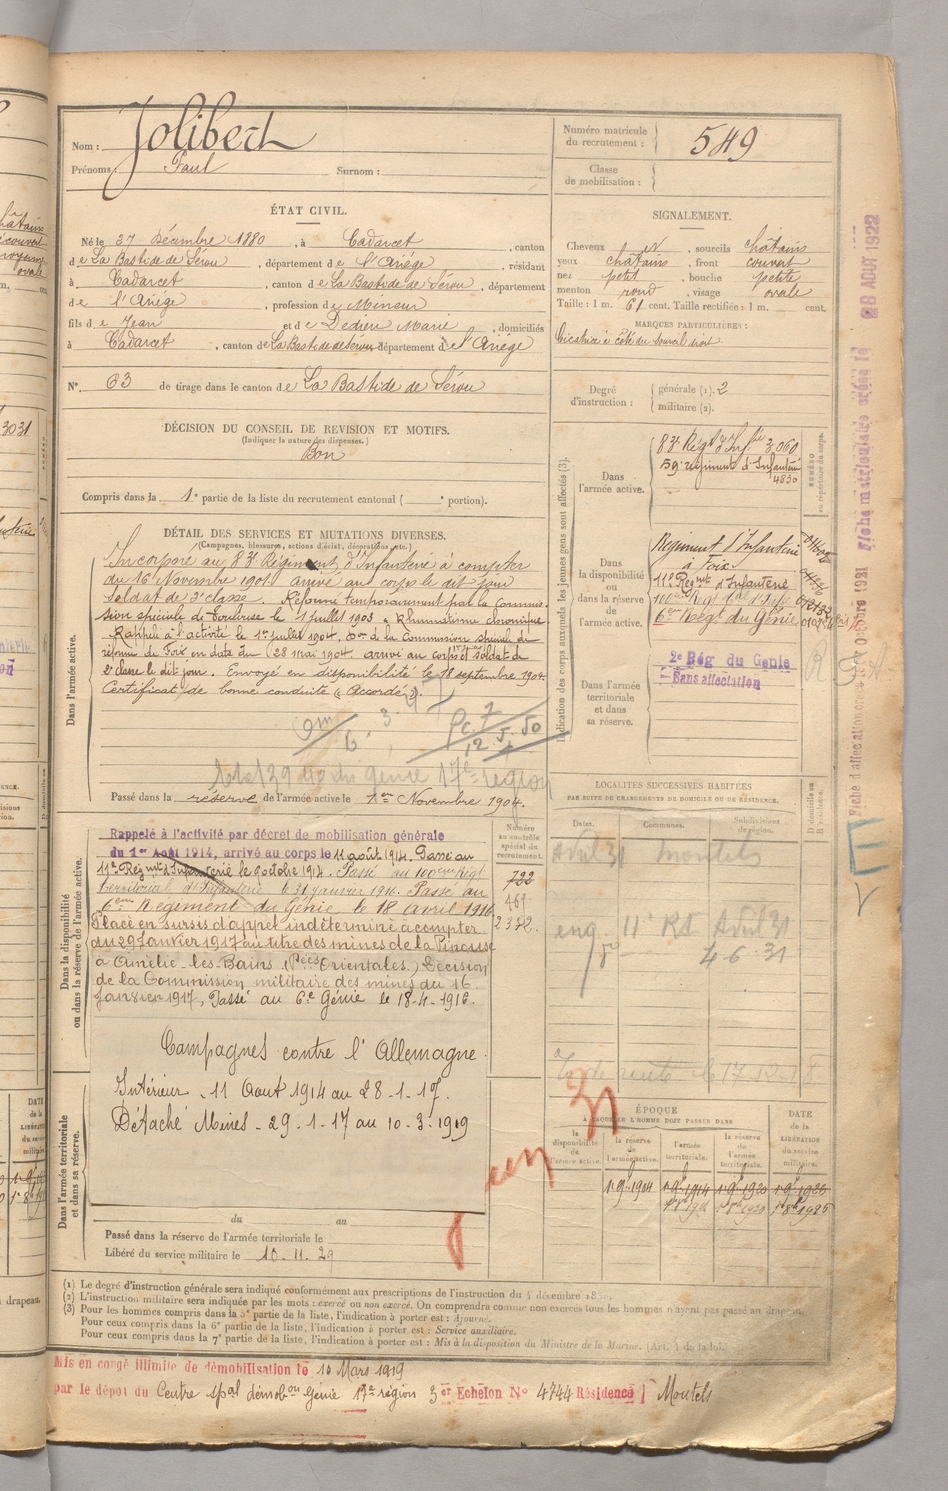 Nom : Jolibert
Prénoms : Paul Surnom :
Numéro matricule
du recrutement : 549
Classe
de mobilisation :
ÉTAT CIVIL.
Né le 27 Décembre 1880, à Cadarcet, canton
de La Bastide de Sérou, département de l'Ariége, résidant
à Cadarcet, canton de La Bastide de Sérou, département
de l'Ariége, profession de Mineur
fils de Jean et de Dedieu Marie, domiciliés
à Cadarcet, canton de La Bastide de Sérou département de l'Ariége
N° 63 de tirage dans le canton de La Bastide de Sérou
SIGNALEMENT.
Cheveux et, sourcils châtains
yeux châtains, front couvert
nez petit, bouche petite
menton rond, visage ovale
Taille : 1 m. 61 cent. Taille rectifiée : 1 m. cent.
MARQUES PARTICULIÈRES :
Cicatrice à côté du sourcil droit
Degré
d'instruction :
générale (1). 2
militaire (2).
DÉCISION DU CONSEIL DE REVISION ET MOTIFS.
(Indiquer la nature des dispenses.)
Bon
Compris dans la 1e partie de la liste du recrutement cantonal ( e portion).
DÉTAIL DES SERVICES ET MUTATIONS DIVERSES.
(Campagnes, blessures, actions d'éclat, décorations, etc.)
Dans l'armée active.
Incorporé au 83e Régiment d'Infanterie à compter
du 16 Novembre 1901 arrivé au corps le dit jour
soldat de 2e classe. Réformé temporairement par la Commis-
sion spéciale de Toulouse le 1 juillet 1903 Rhumatisme chronique
Rappelé à l'activité le 1er juillet 1904, Don de la Commission spéciale de
réforme de Foix en date du (28 mai 1904 arrivé au corps et soldat de
2e classe le dit jour. Envoyé en disponibilité le 18 septembre 1904.
Certificat de bonne conduite « Accordé ».
17e région
Passé dans la réserve de l'armée active le 1er Novembre 1904.
Indication des corps auxquels les jeunes gens sont affectés (3).
NUMÉRO
au répertoire du corps.
Dans
l'armée active.
83e Régt d'Inf.ie 3.060
59e régiment d'Infanterie
4830
Dans
la disponibilité
ou
dans la réserve
de
l'armée active.
Régiment d'Infanterie
à Foix
11e Régmt d'Infanterie
6em Régt du Génie
Dans l'armée
territoriale
et dans
sa réserve.
2e Rég du Genie
Sans affectation
LOCALITÉS SUCCESSIVES HABITÉES
PAR SUITE DE CHANGEMENTS DE DOMICILE OU DE RÉSIDENCE.
Dates. Communes. Subdivisions
de région.
D domicile ou
R résidence.
Avril 31 Moutels
11e Rd Avril 31
4.6.31
Dans la disponibilité
ou dans la réserve de l'armée active.
Numéro
au contrôle
spécial du
recrutement.
722
469
2372.
Rappelé à l'activité par décret de mobilisation générale
du 1er Août 1914, arrivé au corps le 11 août 1914. Passé au
11e Régmt d'Infanterie le 9 octobre 1914. Passé au 100ème Régt
territorial d'Infanterie le 31 janvier 1916. Passé au
6ème Régiment du Génie le 18 Avril 1916
Placé en sursis d'appel indéterminé à compter
du 29 Janvier 1917 au titre des mines de la Pinouse
à Amélie-les-Bains (Pées Orientales) Décision
de la Commission militaire des mines du 16
Janvier 1917, Passé au 6e Génie le 18-4-1916.
Campagnes contre l'Allemagne.
Intérieur - 11 Aout 1914 au 28-1-17.
Détaché Mines - 29-1-17 au 10-3-1919
Dans l'armée territoriale
et dans sa réserve.
du au
Passé dans la réserve de l'armée territoriale le
Libéré du service militaire le 10-11-29
ÉPOQUE
À LAQUELLE L'HOMME DOIT PASSER DANS
la
disponibilité
de
l'armée active.
la réserve
de
l'armée active.
l'armée
territoriale.
la réserve
de
l'armée
territoriale.
DATE
de la
LIBÉRATION
du service
militaire.
1 9bre 1904 1 9bre 1914 1 9bre 1920 1 9bre 1926
(1) Le degré d'instruction générale sera indiqué conformément aux prescriptions de l'instruction du
(2) L'instruction militaire sera indiquée par les mots : exercé ou non exercé. On comprendra comme non exercés tous les hommes n'ayant pas passé au drapeau.
(3) Pour les hommes compris dans la 5e partie de la liste, l'indication à porter est : Ajourné.
Pour ceux compris dans la 6e partie de la liste, l'indication à porter est : Service auxiliaire.
Pour ceux compris dans la 7e partie de la liste, l'indication à porter est : Mis à la disposition du Ministre de la Marine. (Art. 4 de la loi.)
Mis en congé illimité de démobilisation le 10 Mars 1919
par le dépôt du Centre spal démobon Génie 17e région 3er Echelon N° 4744 Résidence Moutels
28 AOUT 1922